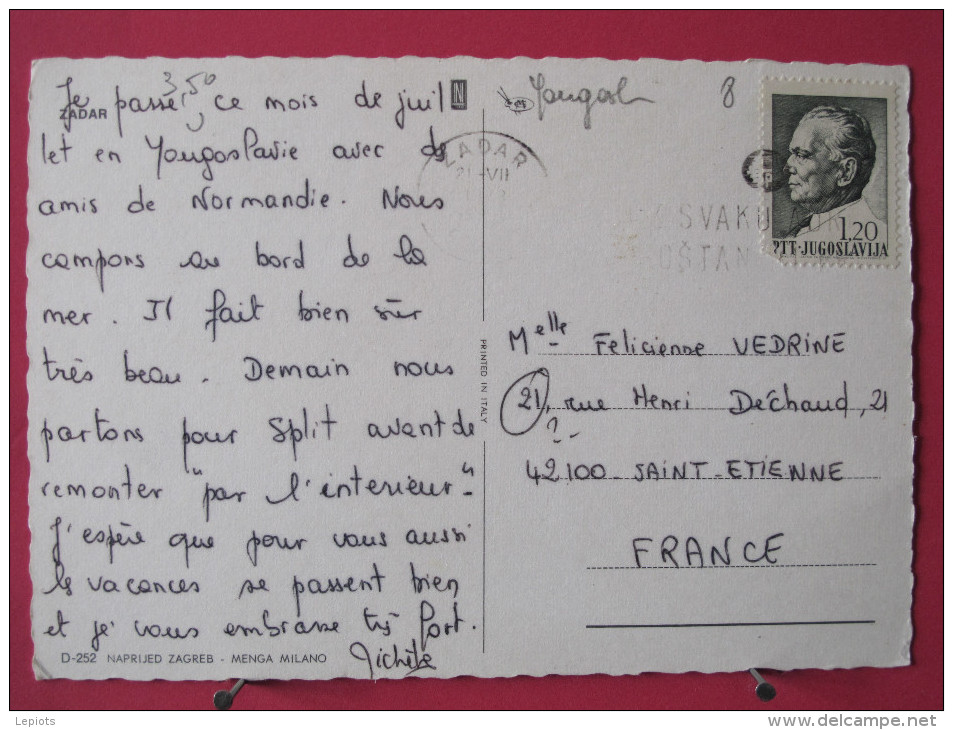 3,50
ZADAR
Je passe, ce mois de juil
let en Yougoslavie avec des
amis de Normandie. Nous
campons au bord de la
mer. Il fait bien sûr
très beau. Demain nous
partons pour Split avant de
remonter "par l'interieur".
J'espère que pour vous aussi
les vacances se passent bien
et je vous embrasse très fort.
Michèle
D-252 NAPRIJED ZAGREB - MENGA MILANO
N
PRINTED IN ITALY
Yougosl
8
ZADAR
21-VII
SVAKU
OŠTAN
1,20
PTT-JUGOSLAVIJA
Melle Felicienne VEDRINE
21, rue Henri Déchaud, 21
?
42100 - SAINT-ETIENNE
FRANCE
Lepiots
www.delcampe.net